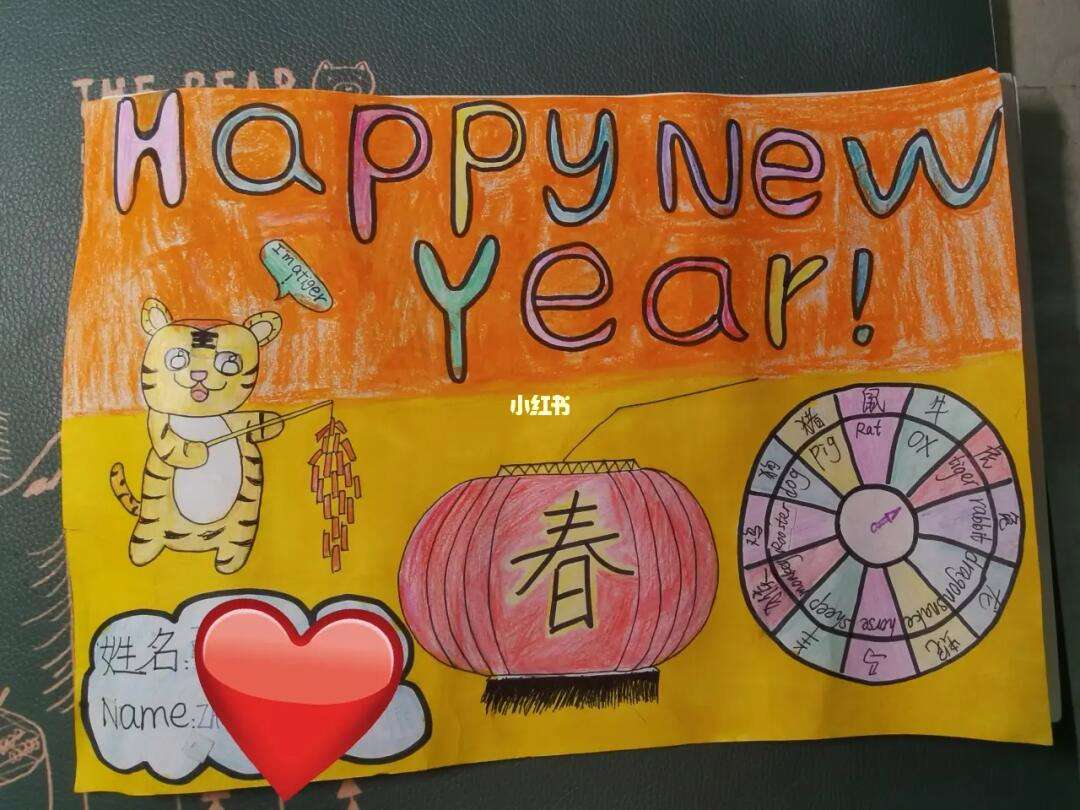 THE BEAR
Happy New
Year!
I'm a tiger
!
小红书
春
鼠
Rat
牛
OX
虎
tiger
兔
rabbit
龙
dragon
蛇
snake
马
horse
羊
sheep
猴
monkey
鸡
Rooster
狗
dog
猪
pig
姓名:
Name: